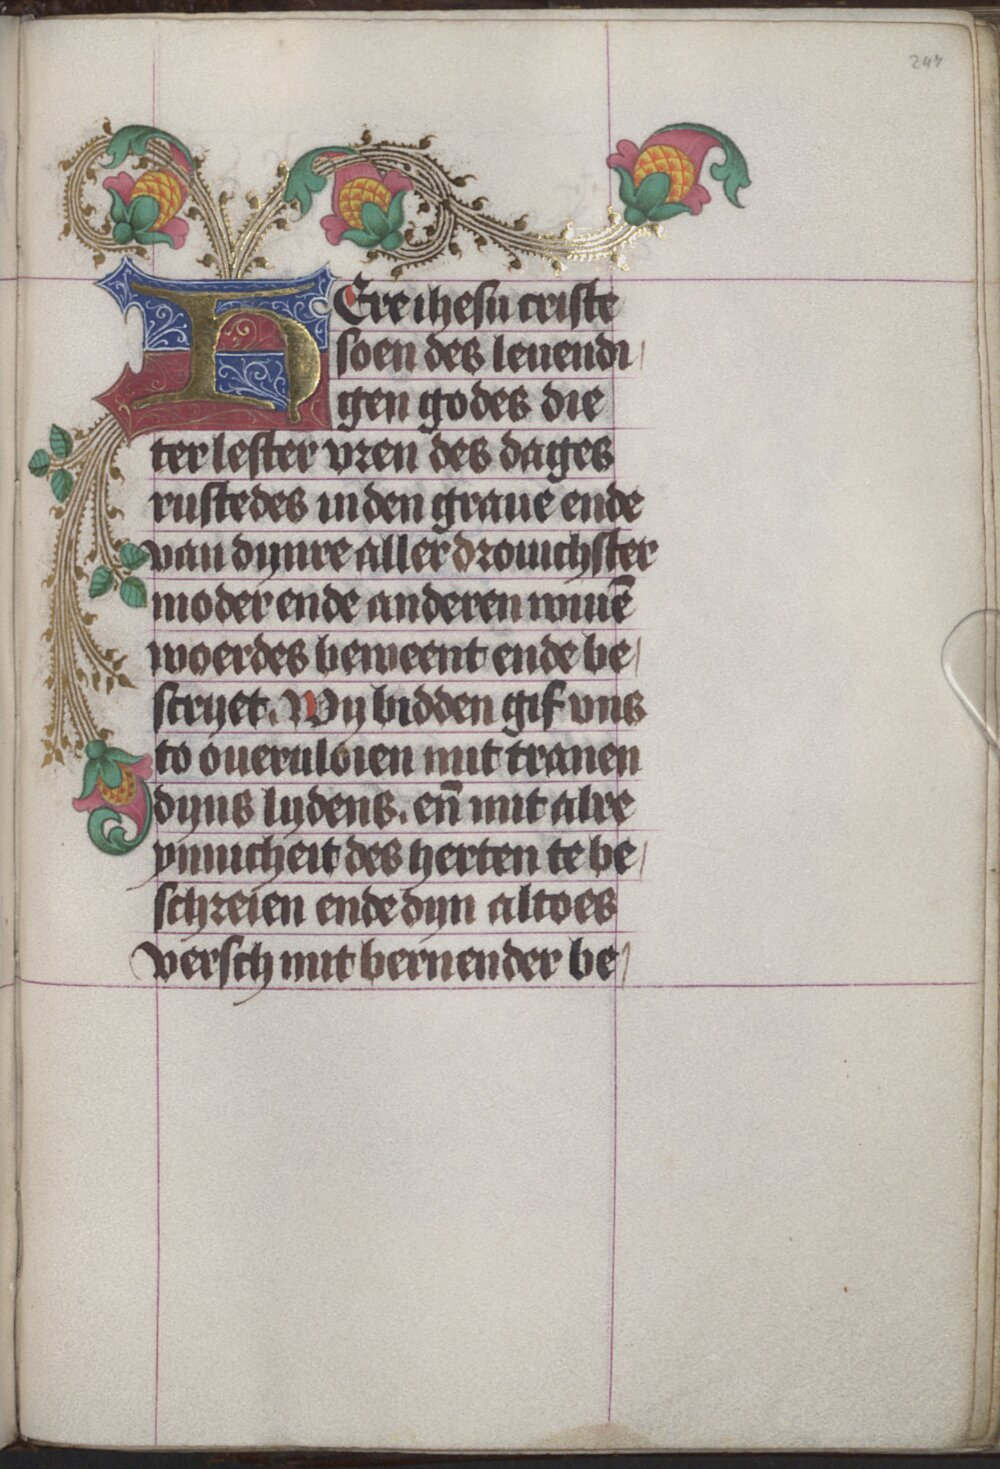 247
HEre ihesu criste
soen des leuendi
gen godes die
ter lester vren des dages
rustedes in den graue ende
van dynre aller drouichster
moder ende anderen wiuē
woerdes beweent ende be
scryet. Wy bidden gif vns
to oueruloien mit tranen
dyns lydens. en̄ mit alre
ynnicheit des herten te be
schreien ende dyn altoes
versch mit bernender be